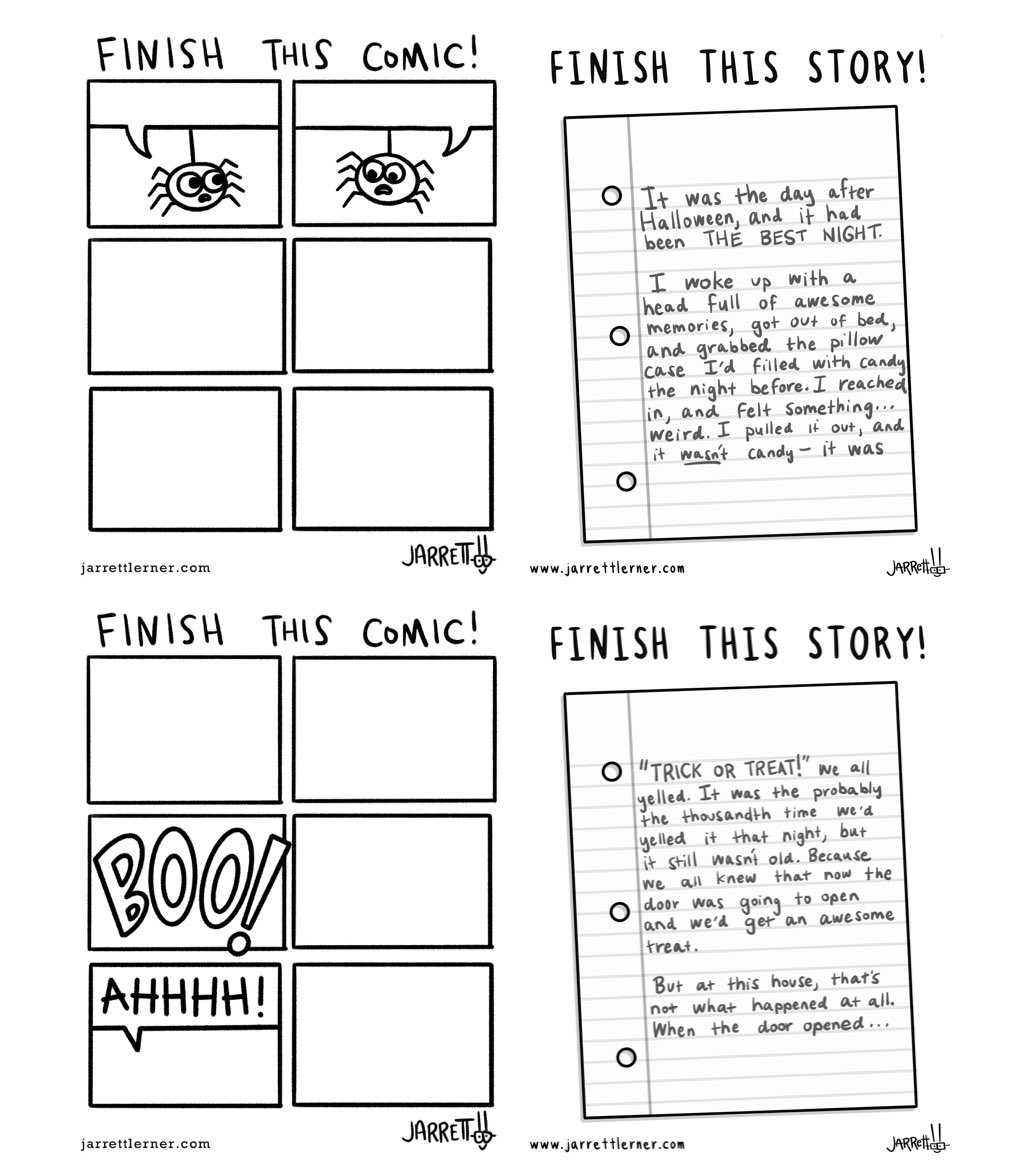 FINISH THIS COMIC!
jarrettlerner.com
JARRETT
FINISH THIS STORY!
It was the day after
Halloween, and it had
been THE BEST NIGHT.
I woke up with a
head full of awesome
memories, got out of bed,
and grabbed the pillow
case I'd filled with candy
the night before. I reached
in, and felt something...
weird. I pulled it out, and
it wasn't candy – it was
www.jarrettlerner.com
JARRETT
FINISH THIS COMIC!
BOO!
AHHHH!
jarrettlerner.com
JARRETT
FINISH THIS STORY!
"TRICK OR TREAT!" we all
yelled. It was the probably
the thousandth time we'd
yelled it that night, but
it still wasn't old. Because
we all knew that now the
door was going to open
and we'd get an awesome
treat.
But at this house, that's
not what happened at all.
When the door opened...
www.jarrettlerner.com
JARRETT